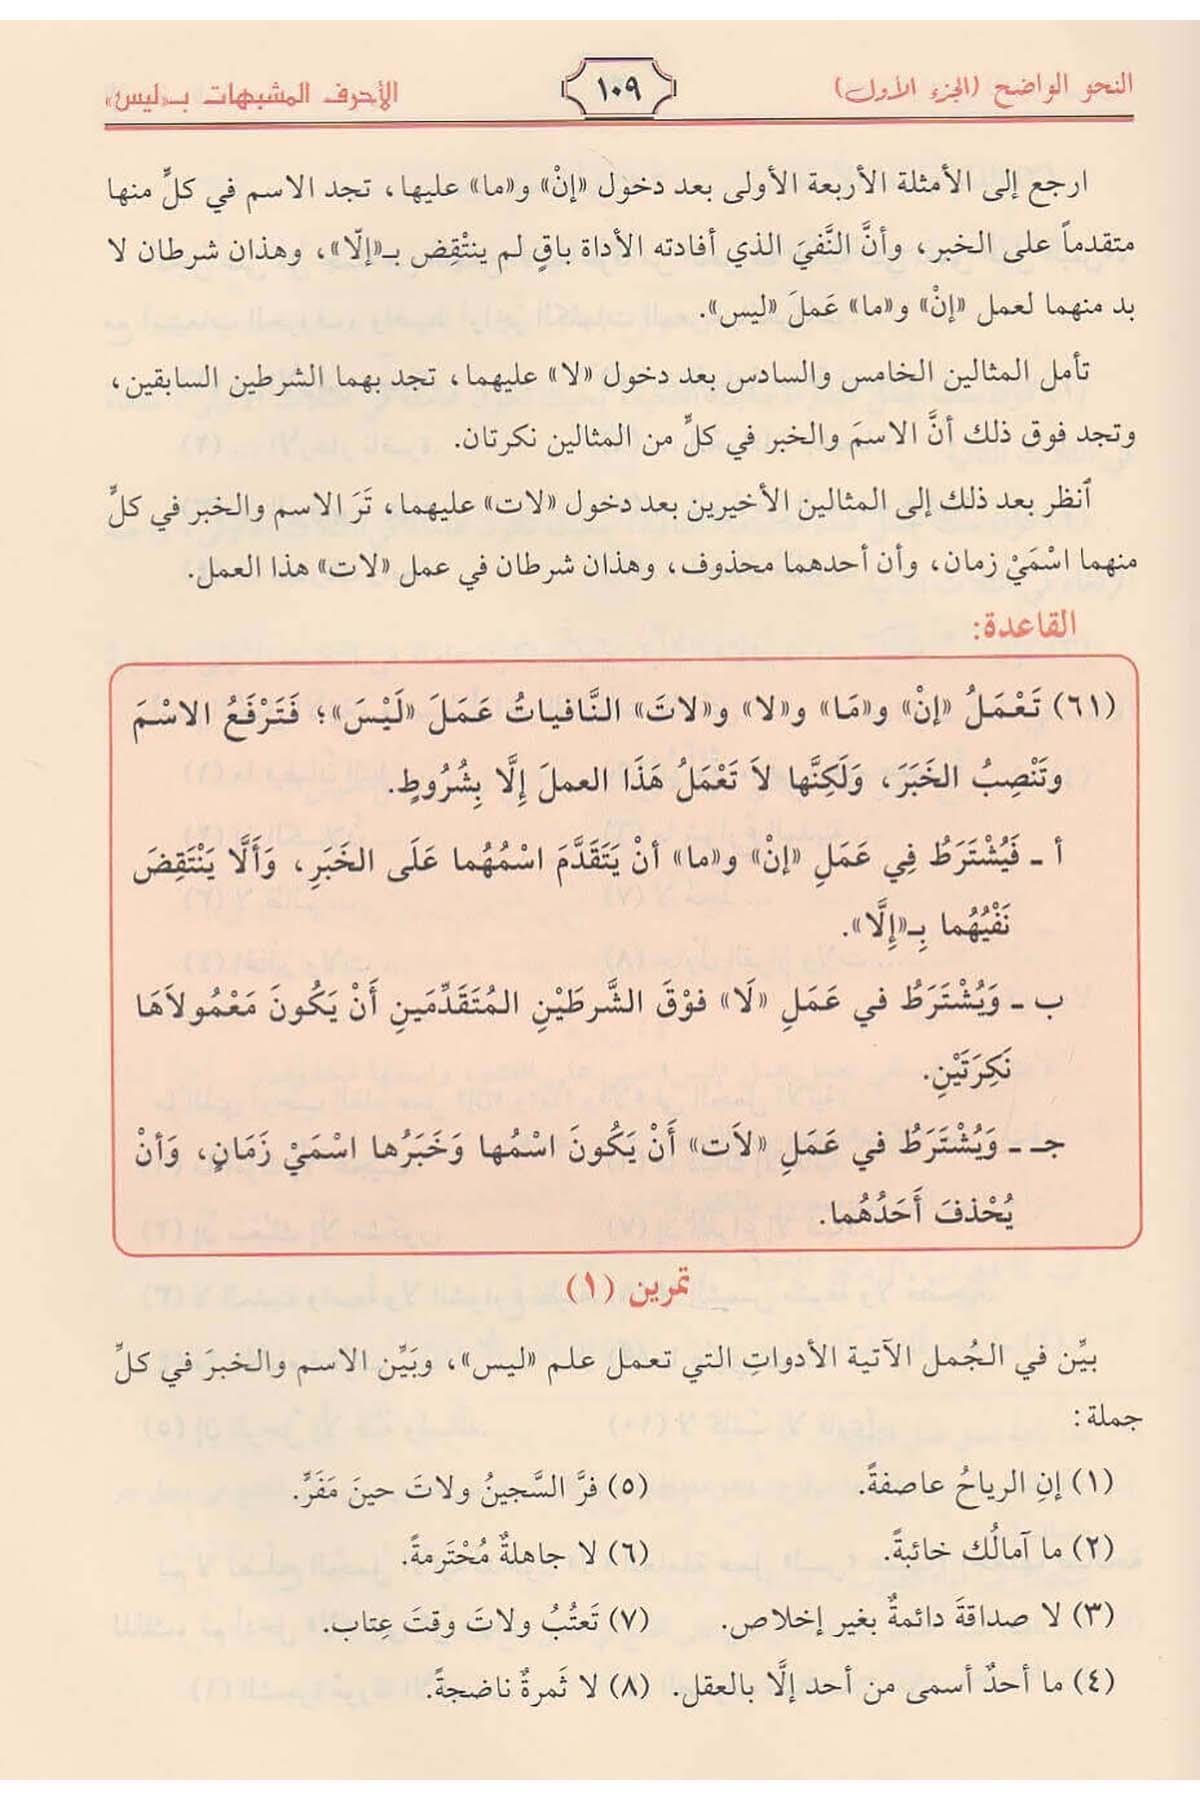 النحو الواضح (الجزء الأول)
١٠٩
الأحرف المشبهات بـ«ليس»
ارجع إلى الأمثلة الأربعة الأولى بعد دخول «إنْ» و«ما» عليها، تجد الاسم في كلٍّ منها
متقدماً على الخبر، وأنَّ النَّفيَ الذي أفادته الأداة باقٍ لم ينتْقِض بـ«إلّا»، وهذان شرطان لا
بد منهما لعمل «إنْ» و«ما» عَملَ «ليس».
تأمل المثالين الخامس والسادس بعد دخول «لا» عليهما، تجد بهما الشرطين السابقين،
وتجد فوق ذلك أنَّ الاسمَ والخبر في كلٍّ من المثالين نكرتان.
اُنظر بعد ذلك إلى المثالين الأخيرين بعد دخول «لات» عليهما، تَرَ الاسم والخبر في كلٍّ
منهما اسْمَيْ زمان، وأن أحدهما محذوف، وهذان شرطان في عمل «لات» هذا العمل.
القاعدة:
(٦١) تَعْمَلُ «إنْ» و«مَا» و«لا» و«لاتَ» النَّافياتُ عَمَلَ «لَيْسَ»؛ فَتَرْفَعُ الاسْمَ
وتَنْصِبُ الخَبَرَ، وَلَكِنَّها لاَ تَعْمَلُ هَذَا العملَ إِلَّا بِشُرُوطٍ.
أ ـ فَيُشْتَرَطُ فِي عَمَلِ «إنْ» و«ما» أنْ يَتَقَدَّمَ اسْمُهُما عَلَى الخَبَرِ، وَأَلَّا يَنْتَقِضَ
نَفْيُهُما بِـ«إِلَّا».
ب ـ وَيُشْتَرَطُ في عَمَلِ «لَا» فوْقَ الشَّرطَيْنِ المُتَقَدِّمَينِ أَنْ يَكُونَ مَعْمُولاَهَا
نَكِرَتَيْنِ.
جـ ـ وَيُشْتَرَطُ في عَمَلِ «لاَت» أَنْ يَكُونَ اسْمُها وَخَبَرُها اسْمَيْ زَمَانٍ، وَأنْ
يُحْذفَ أَحَدُهُما.
تمرين (١)
بيِّن في الجُمل الآتية الأدواتِ التي تعمل علم «ليس»، وبَيِّن الاسم والخبرَ في كلِّ
جملة:
(١) إنِ الرياحُ عاصفةً. (٥) فرَّ السَّجينُ ولاتَ حينَ مَفَرٍّ.
(٢) ما آمالُك خائبةً. (٦) لا جاهلةٌ مُحْتَرمةً.
(٣) لا صداقةَ دائمةٌ بغير إخلاص. (٧) تَعتُبُ ولاتَ وقتَ عِتاب.
(٤) ما أحدٌ أسمى من أحد إلَّا بالعقل. (٨) لا ثَمرةٌ ناضجةً.